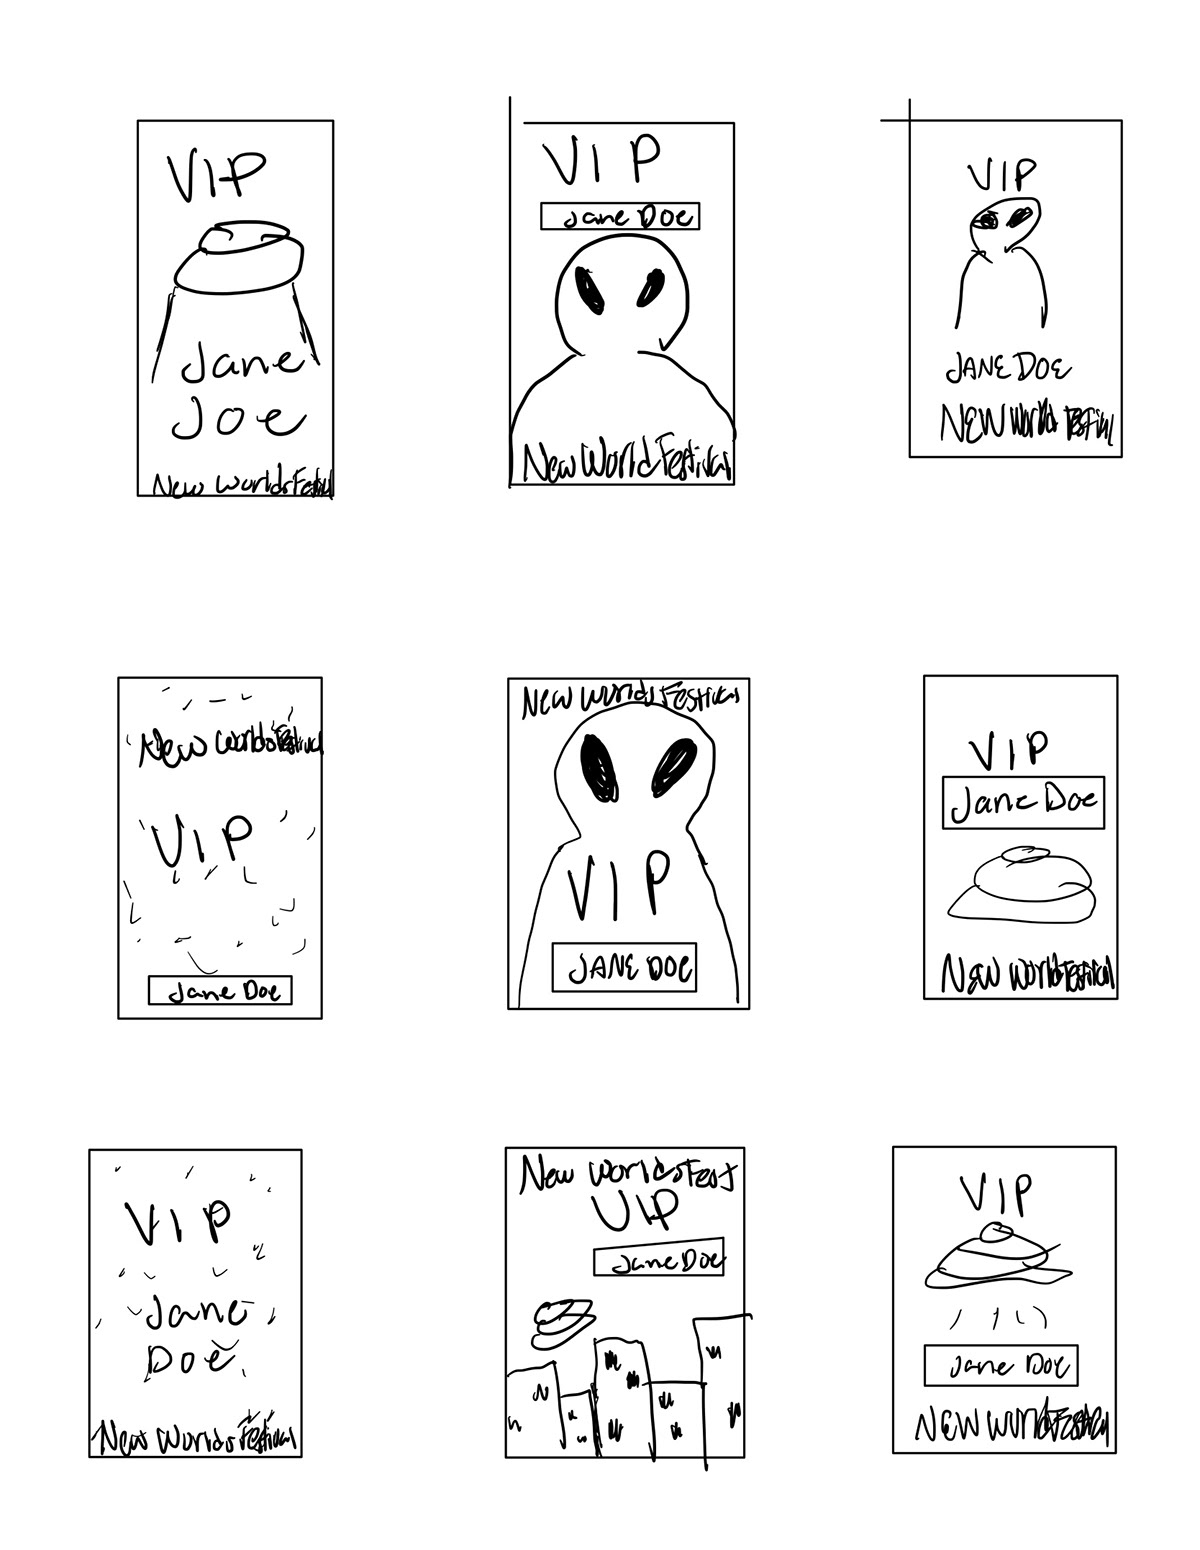 VIP
Jane
Joe
New Worlds Festival
VIP
Jane Doe
New World Festival
VIP
JANE DOE
NEW World Festival
New Worlds Festival
VIP
Jane Doe
New Worlds Festival
VIP
JANE DOE
VIP
Jane Doe
New World Festival
VIP
Jane
Doe
New Worlds Festival
New Worlds Fest
VIP
Jane Doe
VIP
Jane Doe
NEW World Festival